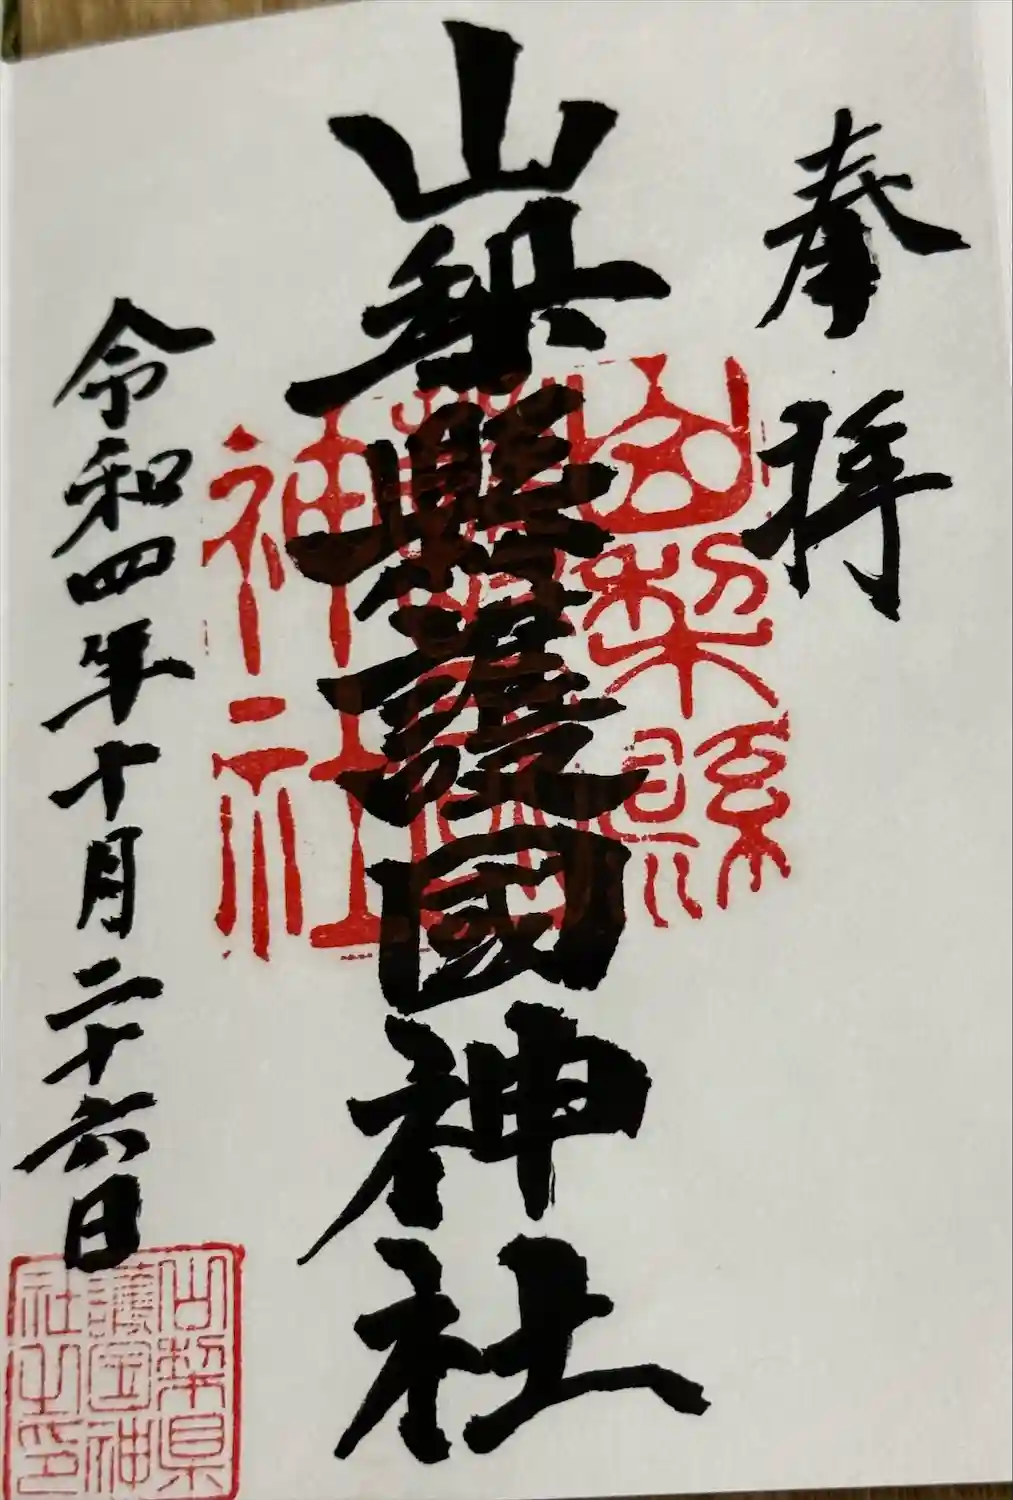 奉拝
山梨縣護國神社
令和四年十月二十六日
山梨縣
護國
神社
山梨県
護国神
社之印